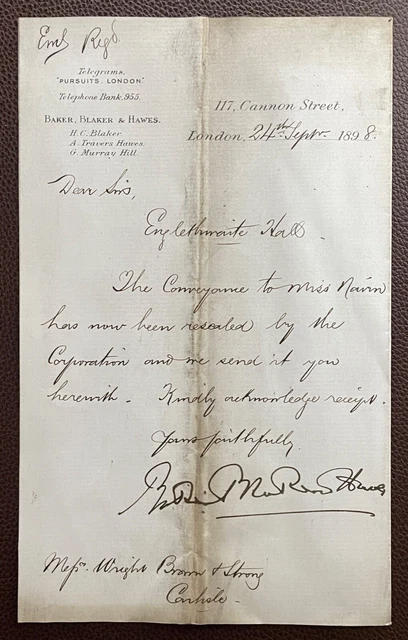 Emb Regd.
Telegrams,
"PURSUITS, LONDON."
Telephone Bank, 955.
BAKER, BLAKER & HAWES.
H. C. Blaker
A. Travers Hawes.
G. Murray Hill.
117, Cannon Street,
London, 24th Septr. 1898.
Dear Sirs,
Englethwaite Hall.
The Conveyance to Miss
has now been resealed by the
Corporation and we send it you
herewith. Kindly acknowledge receipt.
Yours faithfully
Baker Blaker Hawes
Messrs. Wright Brown & Strong
Carlisle.